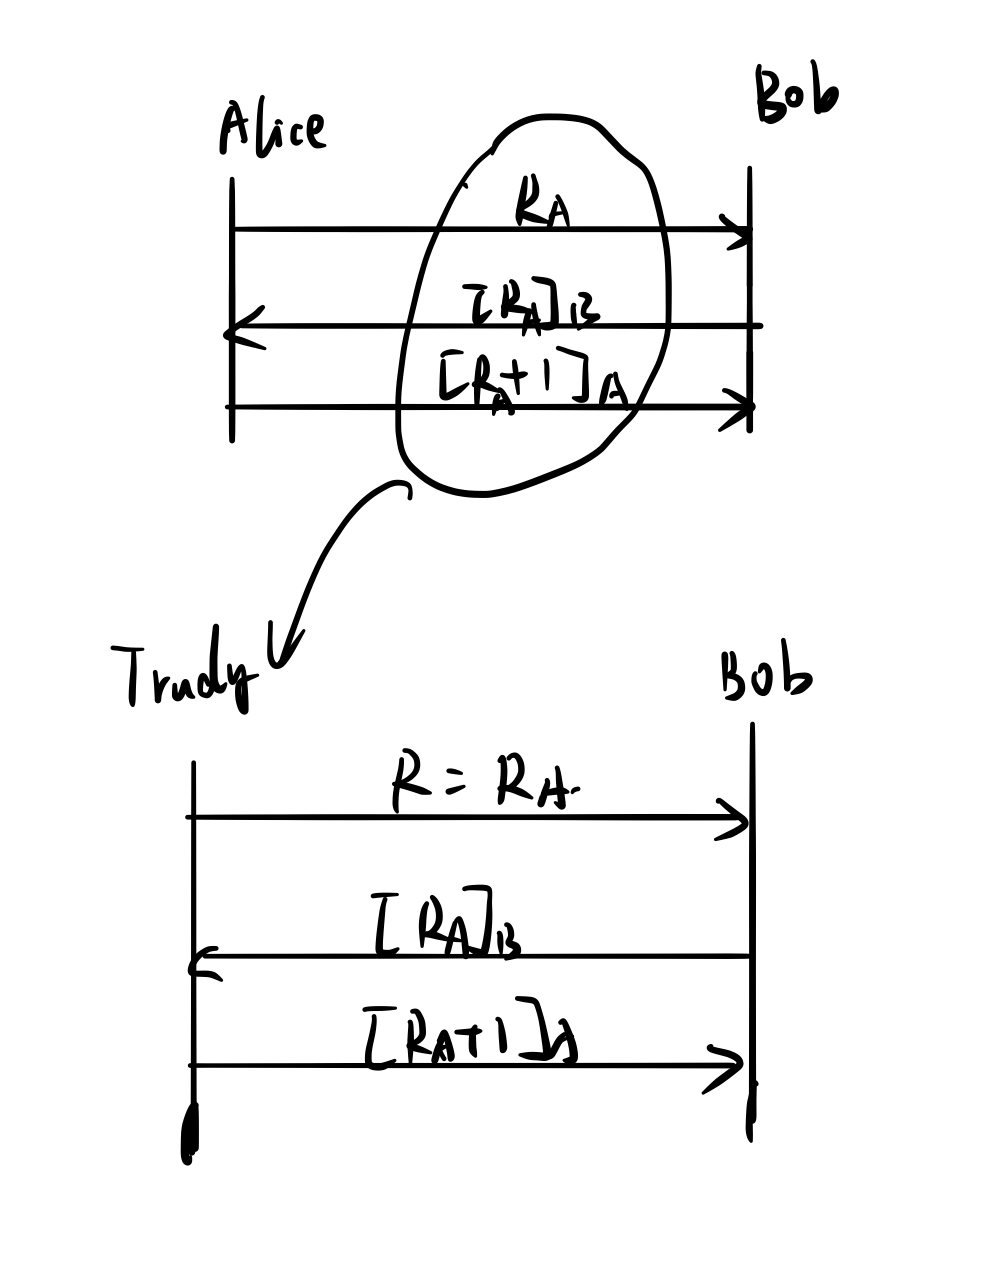 Alice Bob
R_A
[R_A]_B
[R_A+1]_A
Trudy Bob
R = R_A
[R_A]_B
[R_A+1]_A